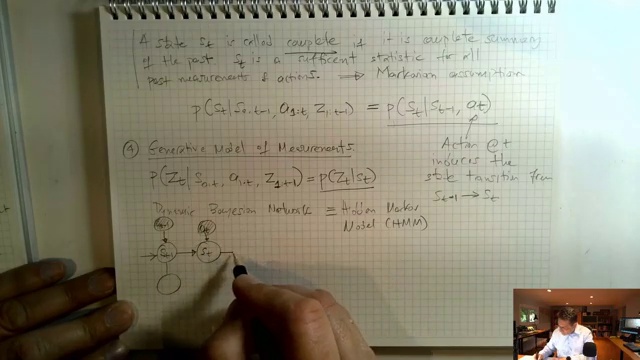 A state St is called complete if it is complete summary
of the past St is a sufficient statistic for all
past measurements & actions. ⟹ Markovian assumption
p(St|S0:t-1, a1:t, Z1:t-1) = p(St|St-1, at)
Action @t
induces the
state transition from
St-1 → St
④ Generative Model of Measurements
p(Zt|S0:t, a1:t, Z1:t-1) = p(Zt|St)
Dynamic Bayesian Networks ≡ Hidden Markov
Model (HMM)
at-1 at
St-1 St